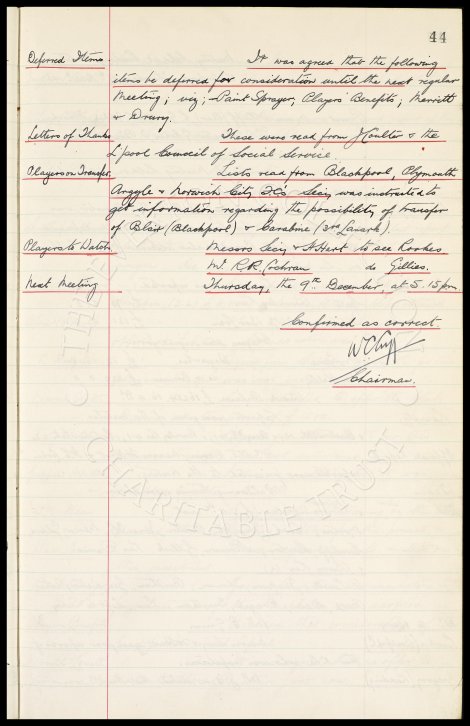 44
Deferred Items It was agreed that the following
items be deferred for consideration until the next regular
Meeting; viz;- Paint Sprayer, Players Benefits, Merritt
& Drury.
Letters of Thanks These were read from J Coulter & the
L'pool Council of Social Service
Players on Transfer. Lists read from Blackpool, Plymouth
Argyle & Norwich City FC's Secy was instructed to
get information regarding the possibility of transfer
of Blair (Blackpool) & Carabine (3rd Lanark).
Players to Watch Messrs Secy & Hart to see Rookes
Mr. R.R. Cochran do Gillies.
Next Meeting Thursday, the 9th December, at 5.15pm
Confirmed as correct
W C Cuff
Chairman.
THE EV
CHARITABLE TRUST